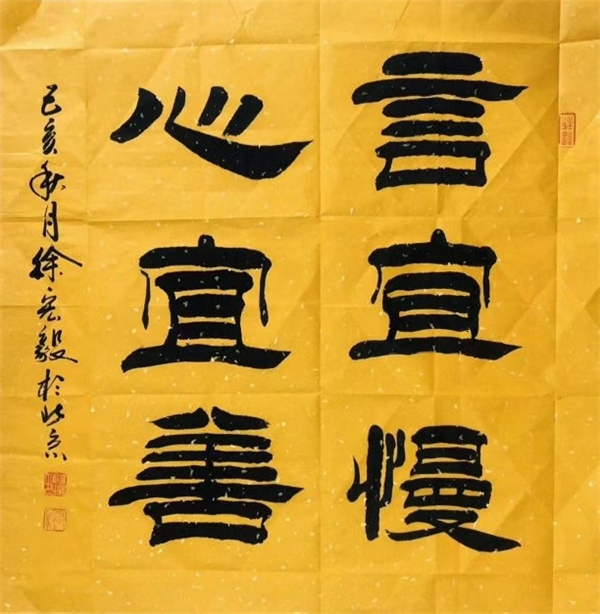 言宜慢
心宜善
己亥秋月徐宏毅於北京